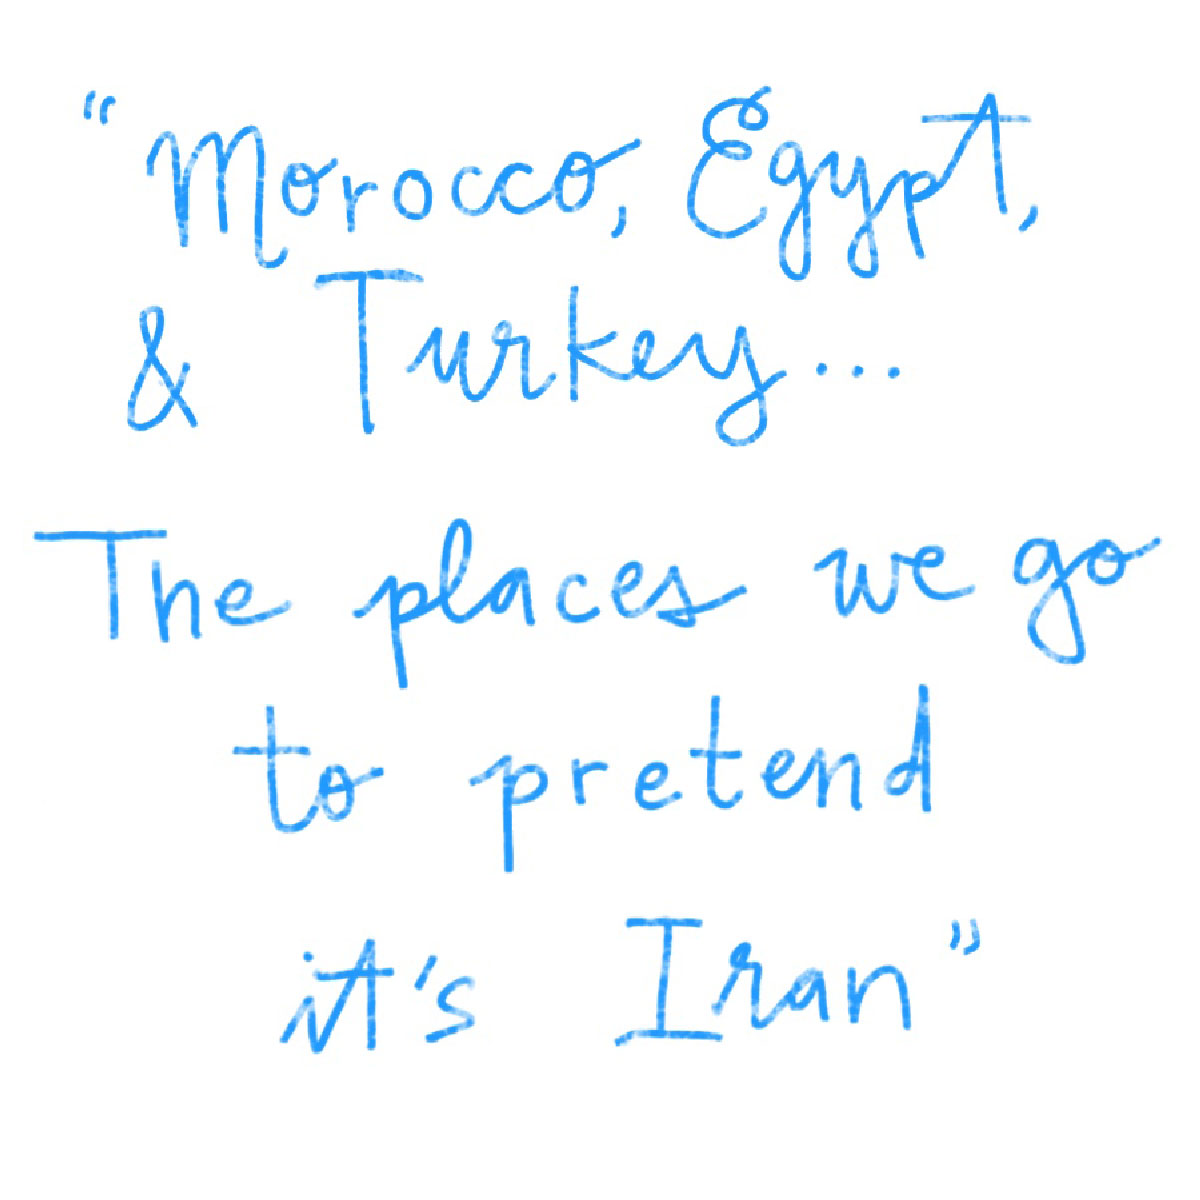 “Morocco, Egypt,
& Turkey...
The places we go
to pretend
it's Iran”